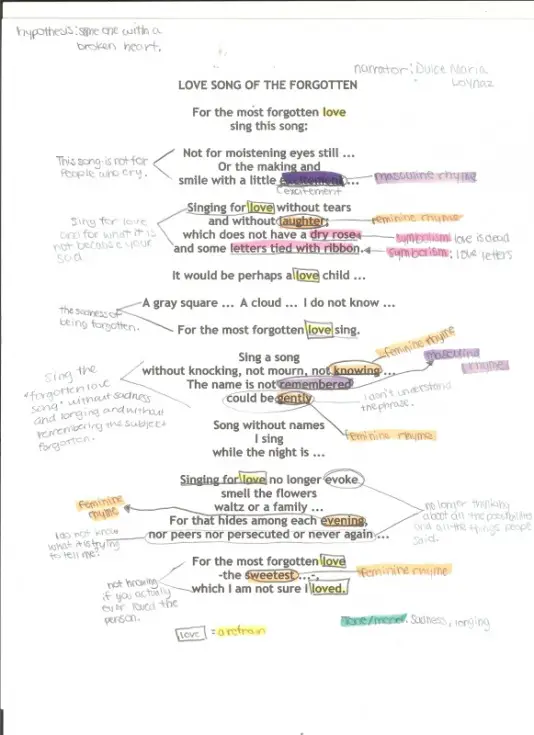 hypothesis: some one with a
broken heart.
narrator: Dulce Maria
Loynaz
LOVE SONG OF THE FORGOTTEN
For the most forgotten love
sing this song:
Not for moistening eyes still ...
Or the making and
smile with a little excitement ...
excitement
masculine rhyme
This song is not for
people who cry.
Singing for love without tears
and without laughter;
feminine rhyme
which does not have a dry rose
symbolism: love is dead
and some letters tied with ribbon.
symbolism: love letters
Sing for love
and for what it is
not because your
sad.
It would be perhaps a love child ...
A gray square ... A cloud ... I do not know ...
the sadness of
being forgotten.
For the most forgotten love sing.
Sing a song
without knocking, not mourn, not knowing ...
feminine rhyme
The name is not remembered
masculine
rhyme
could be gently
I don't understand
the phrase.
feminine rhyme
Sing the
"forgotten love
song" without sadness
and longing and without
remembering the subject
forgotten.
Song without names
I sing
while the night is ...
Singing for love no longer evoke
smell the flowers
waltz or a family ...
feminine
rhyme
For that hides among each evening,
nor peers nor persecuted or never again ...
I do not know
what it is trying
to tell me?
no longer thinking
about all the possibilities
and all the things people
said.
For the most forgotten love
-the sweetest ...-,
feminine rhyme
which I am not sure I loved.
not knowing
if you actually
ever loved the
person.
love = a refrain
tone/mood: Sadness, longing